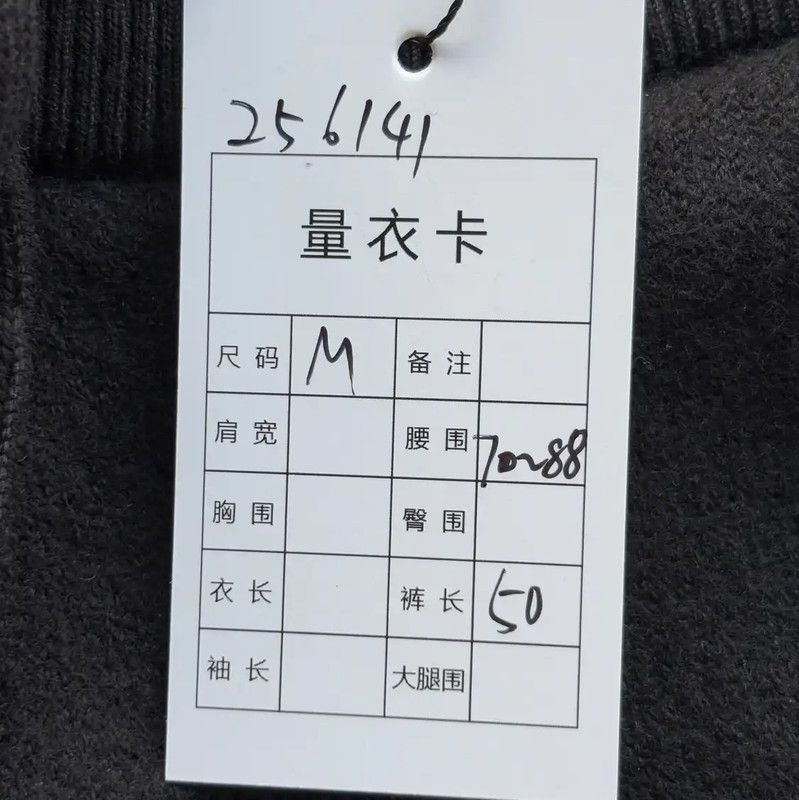 256141
量衣卡
尺码 M 备注
肩宽 腰围 70~88
胸围 臀围
衣长 裤长 50
袖长 大腿围